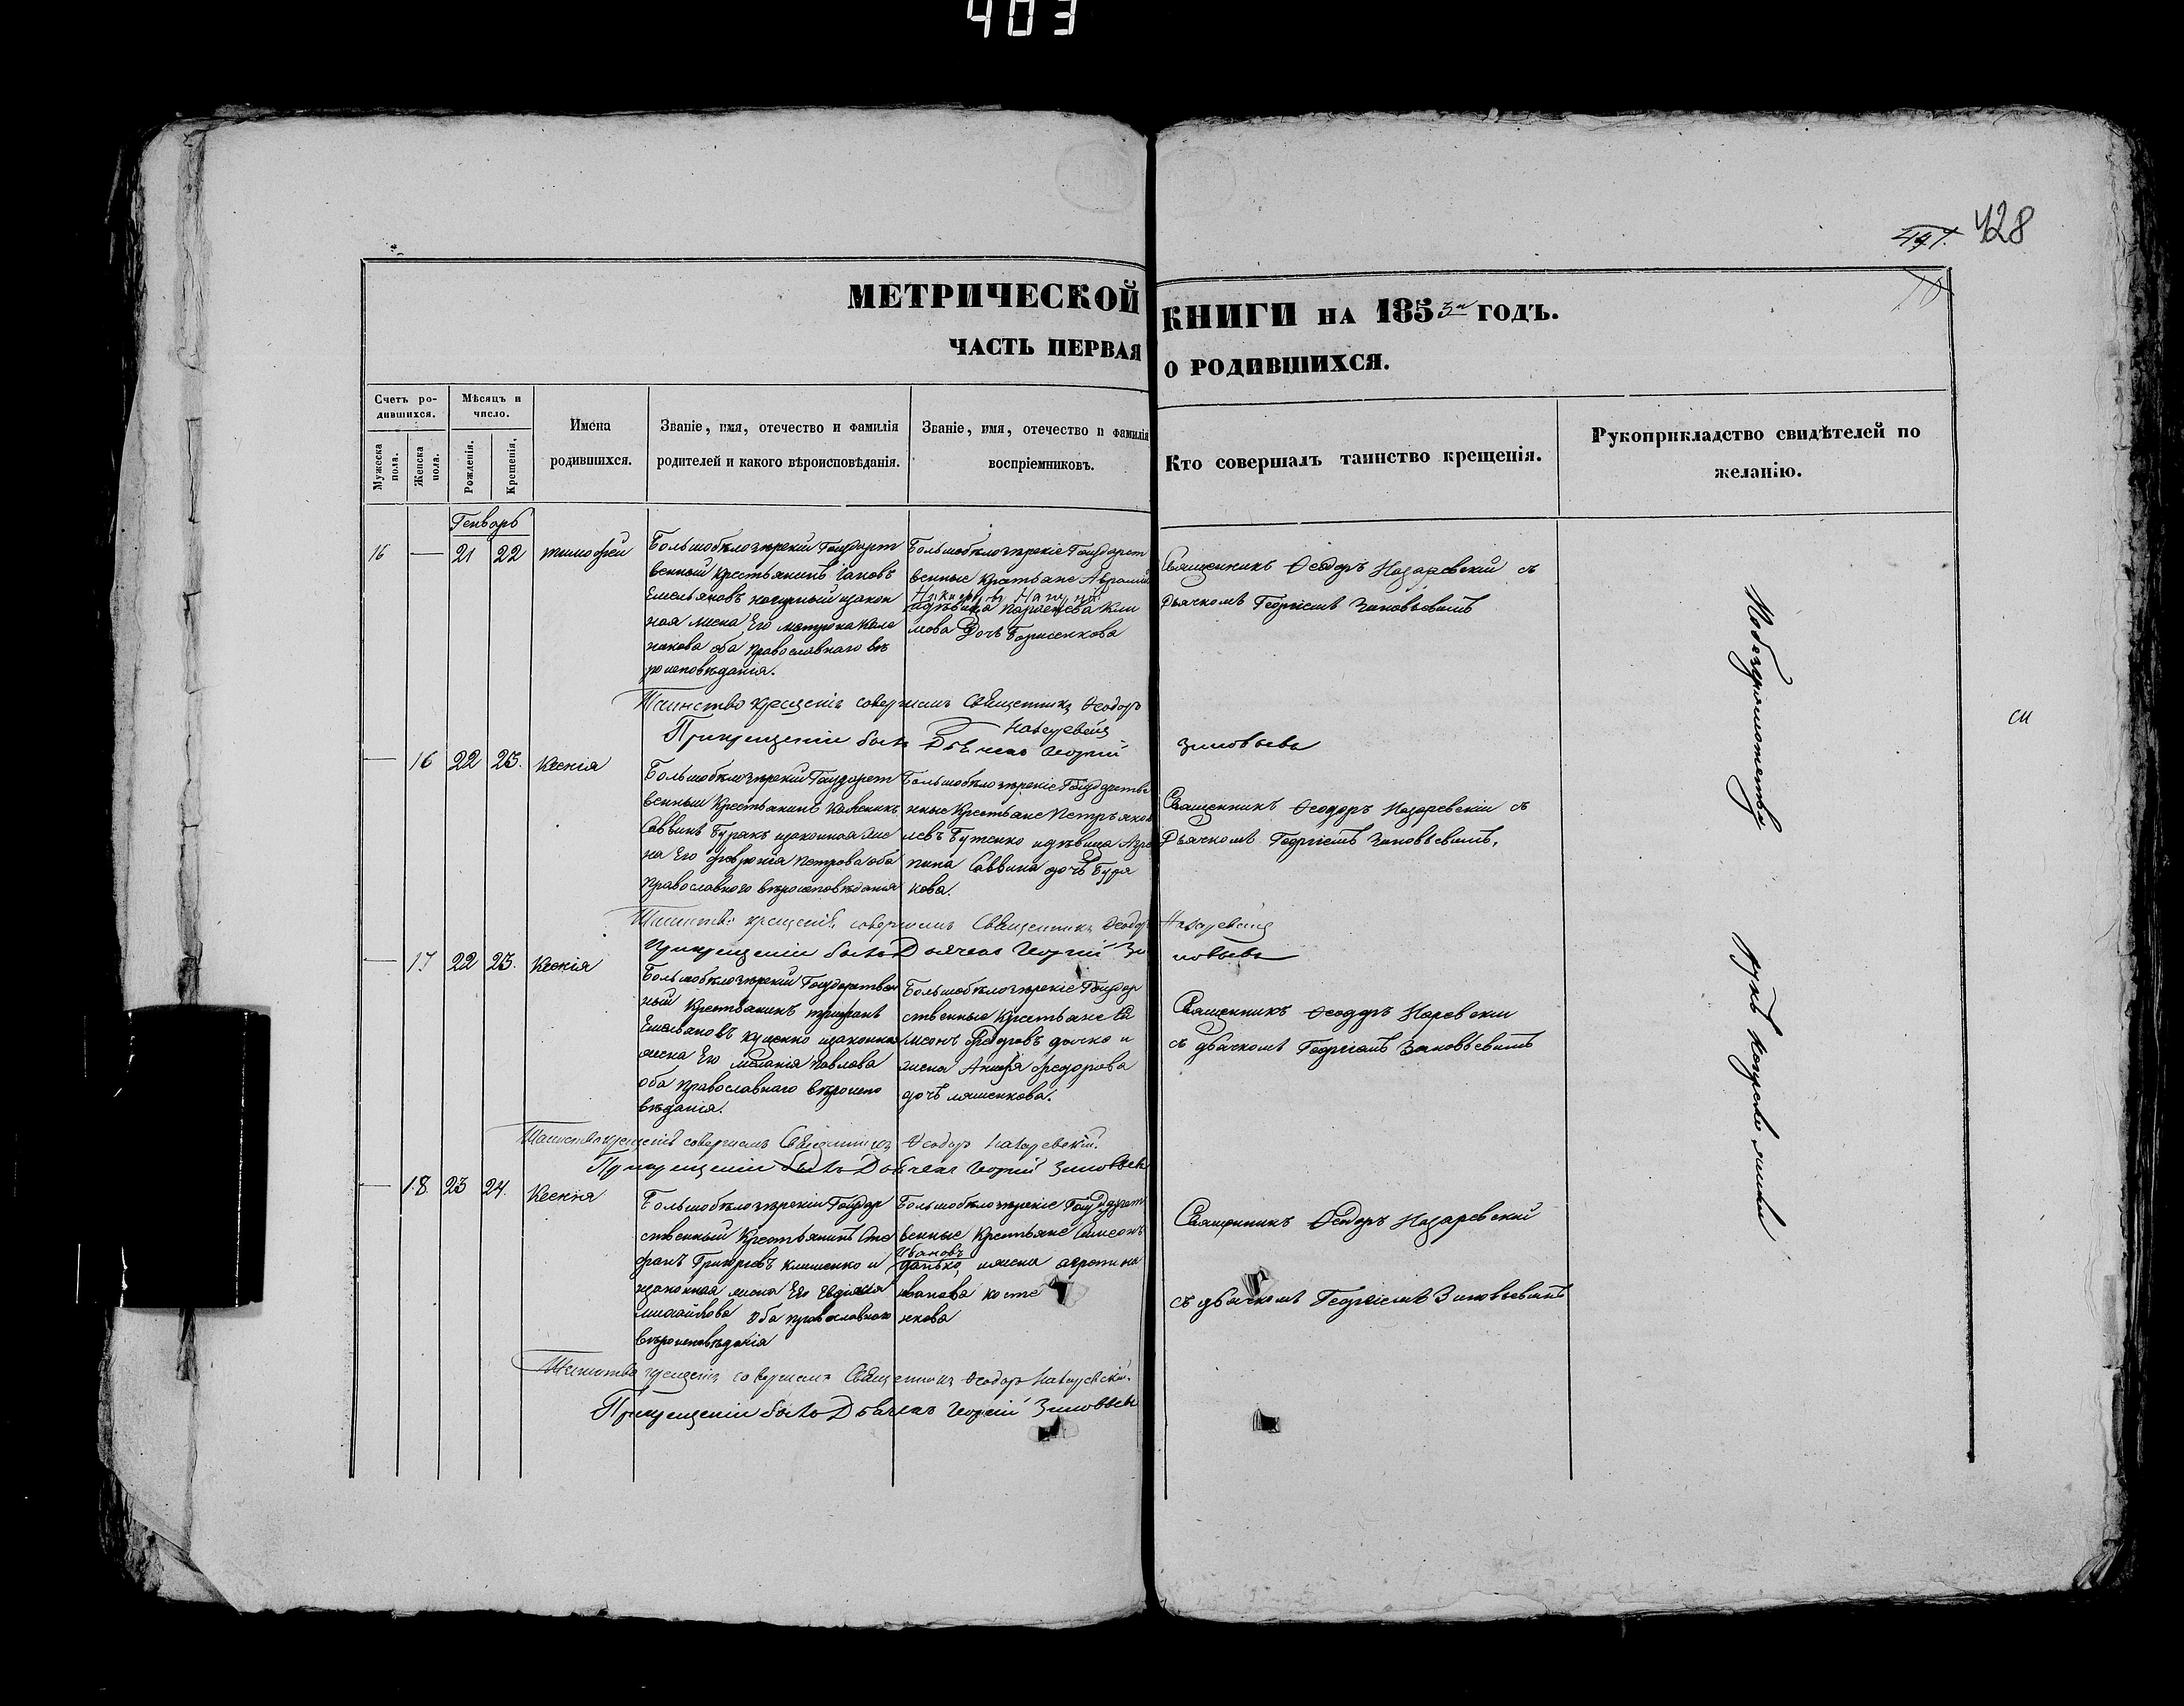 403
491. 428
МЕТРИЧЕСКОЙ КНИГИ НА 1853й ГОДЪ.
ЧАСТЬ ПЕРВАЯ О РОДИВШИХСЯ.
Счетъ ро-
дившихся.
Мужеска пола.
Женска пола.
Мѣсяцъ и
число.
Рожденія.
Крещенія.
Имена
родившихся.
Званіе, имя, отечество и фамилія
родителей и какого вѣроисповѣданія.
Званіе, имя, отечество и фамилія
воспріемниковъ.
Кто совершалъ таинство крещенія.
Рукоприкладство свидѣтелей по
желанію.
Генварь
16 — 21 22 тимофей
Большобѣлозѣрскій Государст
венный крестьянинъ
Емельяновъ изакон
ная жена Его матрона
оба православнаго вѣ
роисповѣданія.
Большобѣлозѣрскіе Государст
венные крестьяне
идѣвица
мова дочь Борисенкова
Священникъ Ѳеодоръ Назаревскій съ
Дьячкомъ Георгіемъ Зиновьевымъ
Таинство крещенія совершалъ Священникъ Ѳеодоръ
Назаревскій
При крещеніи былъ Дьячекъ Георгій Зиновьевъ
— 16 22 23. Ксенія
Большобѣлозѣрскій Государст
венный Крестьянинъ
Саввинъ Буракъ изаконная же
на Его февронія Петрова оба
православнаго вѣроисповѣданія
Большобѣлозѣрскіе Государстве
нные Крестьяне Петръ Яков
левъ Бутенко идѣвица Агри
пина Саввина дочь Буря
кова.
Священникъ Ѳеодоръ Назаревскій съ
Дьячкомъ Георгіемъ Зиновьевымъ.
Таинство крещенія совершалъ Священникъ Ѳеодоръ Назаревскій
При крещеніи былъ Дьячекъ Георгій Зиновьевъ
— 17 22 23. Ксенія
Большобѣлозѣрскій Государствен
ный Крестьянинъ трифонъ
Емельяновъ куценко изаконная
жена Его меланія Павлова
оба православнаго вѣроиспо
вѣданія.
Большобѣлозѣрскіе Государ
ственные Крестьяне Си
меонъ Федоровъ дычко и
жена Федорова
дочь ляшенкова.
Священникъ Ѳеодоръ Наревскій
съ дьячкомъ Георгіемъ Зиновьевымъ
Таинство крещенія совершалъ Священникъ Ѳеодоръ Назаревскій.
При крещеніи былъ Дьячекъ Георгій Зиновьевъ
— 18. 23 24. Ксенія
Большобѣлозѣрскій Государ
ственный Крестьянинъ Сте
фанъ Григорьевъ клименко и
изаконная жена Его Евдокія
михайлова Оба православнаго
вѣроисповѣданія
Большобѣлозѣрскіе Государст
венные Крестьяне Симеонъ
Ивановъ
ижена агрипина
иванова косте
нкова
Священникъ Ѳеодоръ Назаревскій
съ дьячкомъ Георгіемъ Зиновьевымъ
Таинство крещенія совершалъ Священникъ Ѳеодоръ Назаревскій.
При крещеніи былъ Дьячекъ Георгій Зиновьевъ